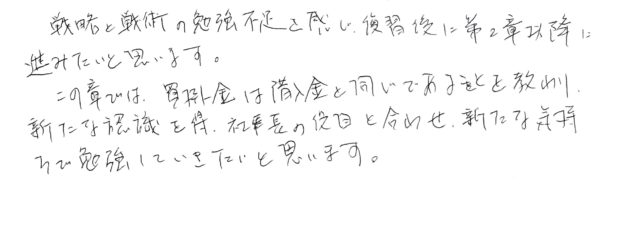 戦略と戦術の勉強不足を感じ、復習後に第2章以降に
進みたいと思います。
この章では、買掛金は借入金と同じであることを教わり、
新たな認識を得、社長の役目と合わせ、新たな気持
ちで勉強していきたいと思います。